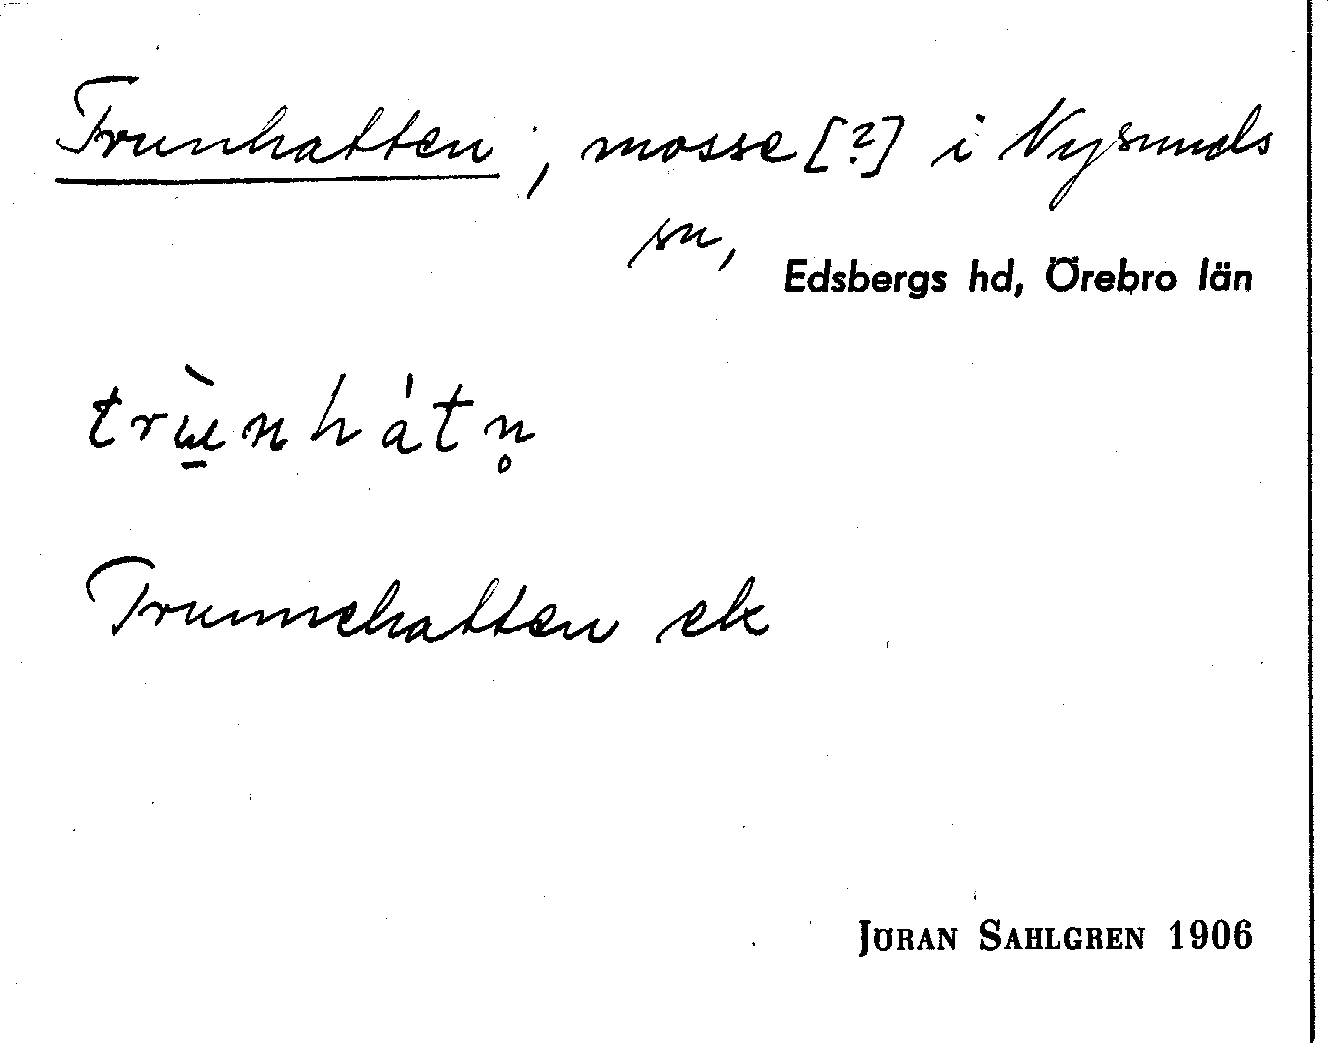 Trunhatten, mosse [?] i Nysunds
sn,
Edsbergs hd, Örebro län
trɯ̠̀nhátn̥
Trunnehatten ek
JÖRAN SAHLGREN 1906